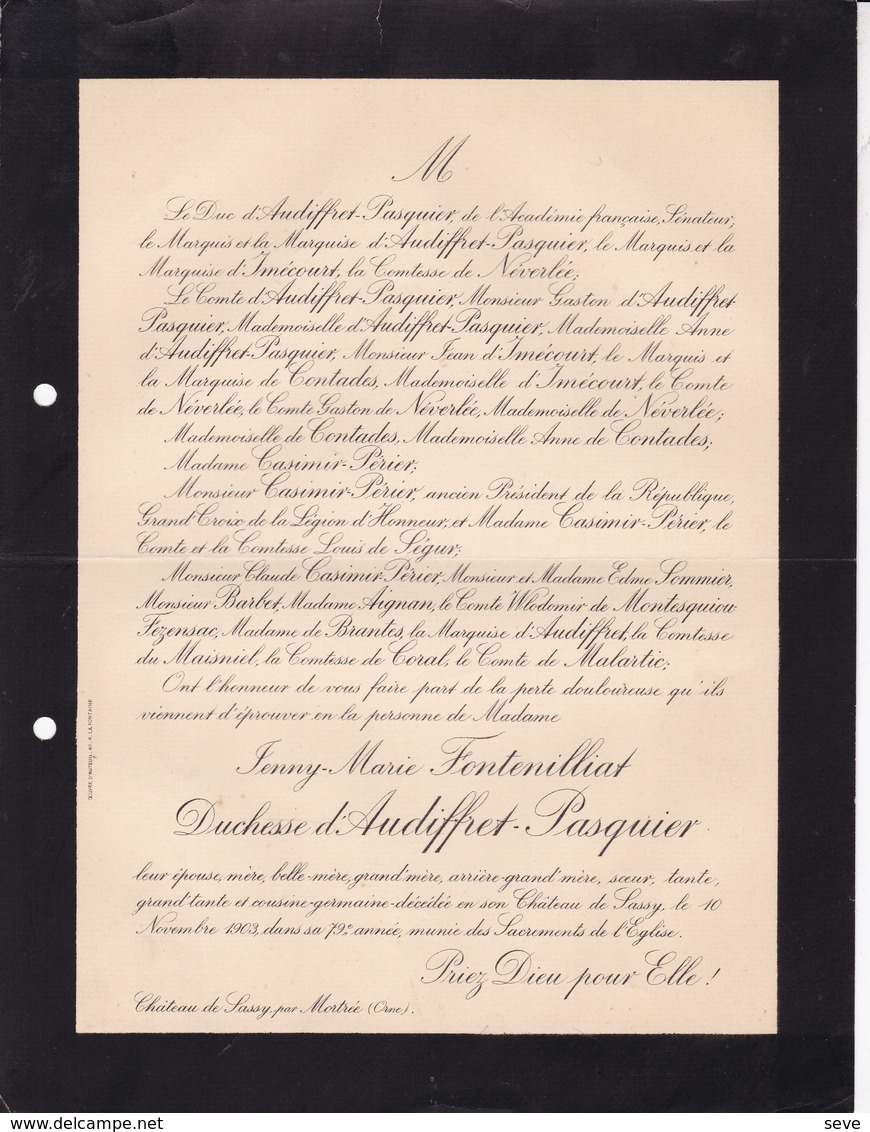 M
Le Duc d'Audiffret-Pasquier, de l'Académie française, Sénateur,
le Marquis et la Marquise d'Audiffret-Pasquier, le Marquis et la
Marquise d'Imécourt, la Comtesse de Néverlée;
Le Comte d'Audiffret-Pasquier, Monsieur Gaston d'Audiffret
Pasquier, Mademoiselle d'Audiffret-Pasquier, Mademoiselle Anne
d'Audiffret-Pasquier, Monsieur Jean d'Imécourt, le Marquis et
la Marquise de Contades, Mademoiselle d'Imécourt, le Comte
de Néverlée, le Comte Gaston de Néverlée, Mademoiselle de Néverlée;
Mademoiselle de Contades, Mademoiselle Anne de Contades;
Madame Casimir-Périer;
Monsieur Casimir-Périer, ancien Président de la République,
Grand'Croix de la Légion d'Honneur, et Madame Casimir-Périer, le
Comte et la Comtesse Louis de Ségur;
Monsieur Claude Casimir-Périer, Monsieur et Madame Edme Sommier,
Monsieur Barbet, Madame Aignan, le Comte Wlodomir de Montesquiou
Fezensac, Madame de Brantes, la Marquise d'Audiffret, la Comtesse
du Maisniel, la Comtesse de Coral, le Comte de Malartic;
Ont l'honneur de vous faire part de la perte douloureuse qu'ils
viennent d'éprouver en la personne de Madame
Jenny-Marie Fontenilliat
Duchesse d'Audiffret-Pasquier
leur épouse, mère, belle-mère, grand'mère, arrière-grand'mère, sœur, tante,
grand'tante et cousine-germaine, décédée en son Château de Sassy, le 10
Novembre 1903, dans sa 79e année, munie des Sacrements de l'Eglise.
Priez Dieu pour Elle !
Château de Sassy, par Mortrée (Orne).
ŒUVRE D'AUTEUIL, 40, R. LA FONTAINE
seve